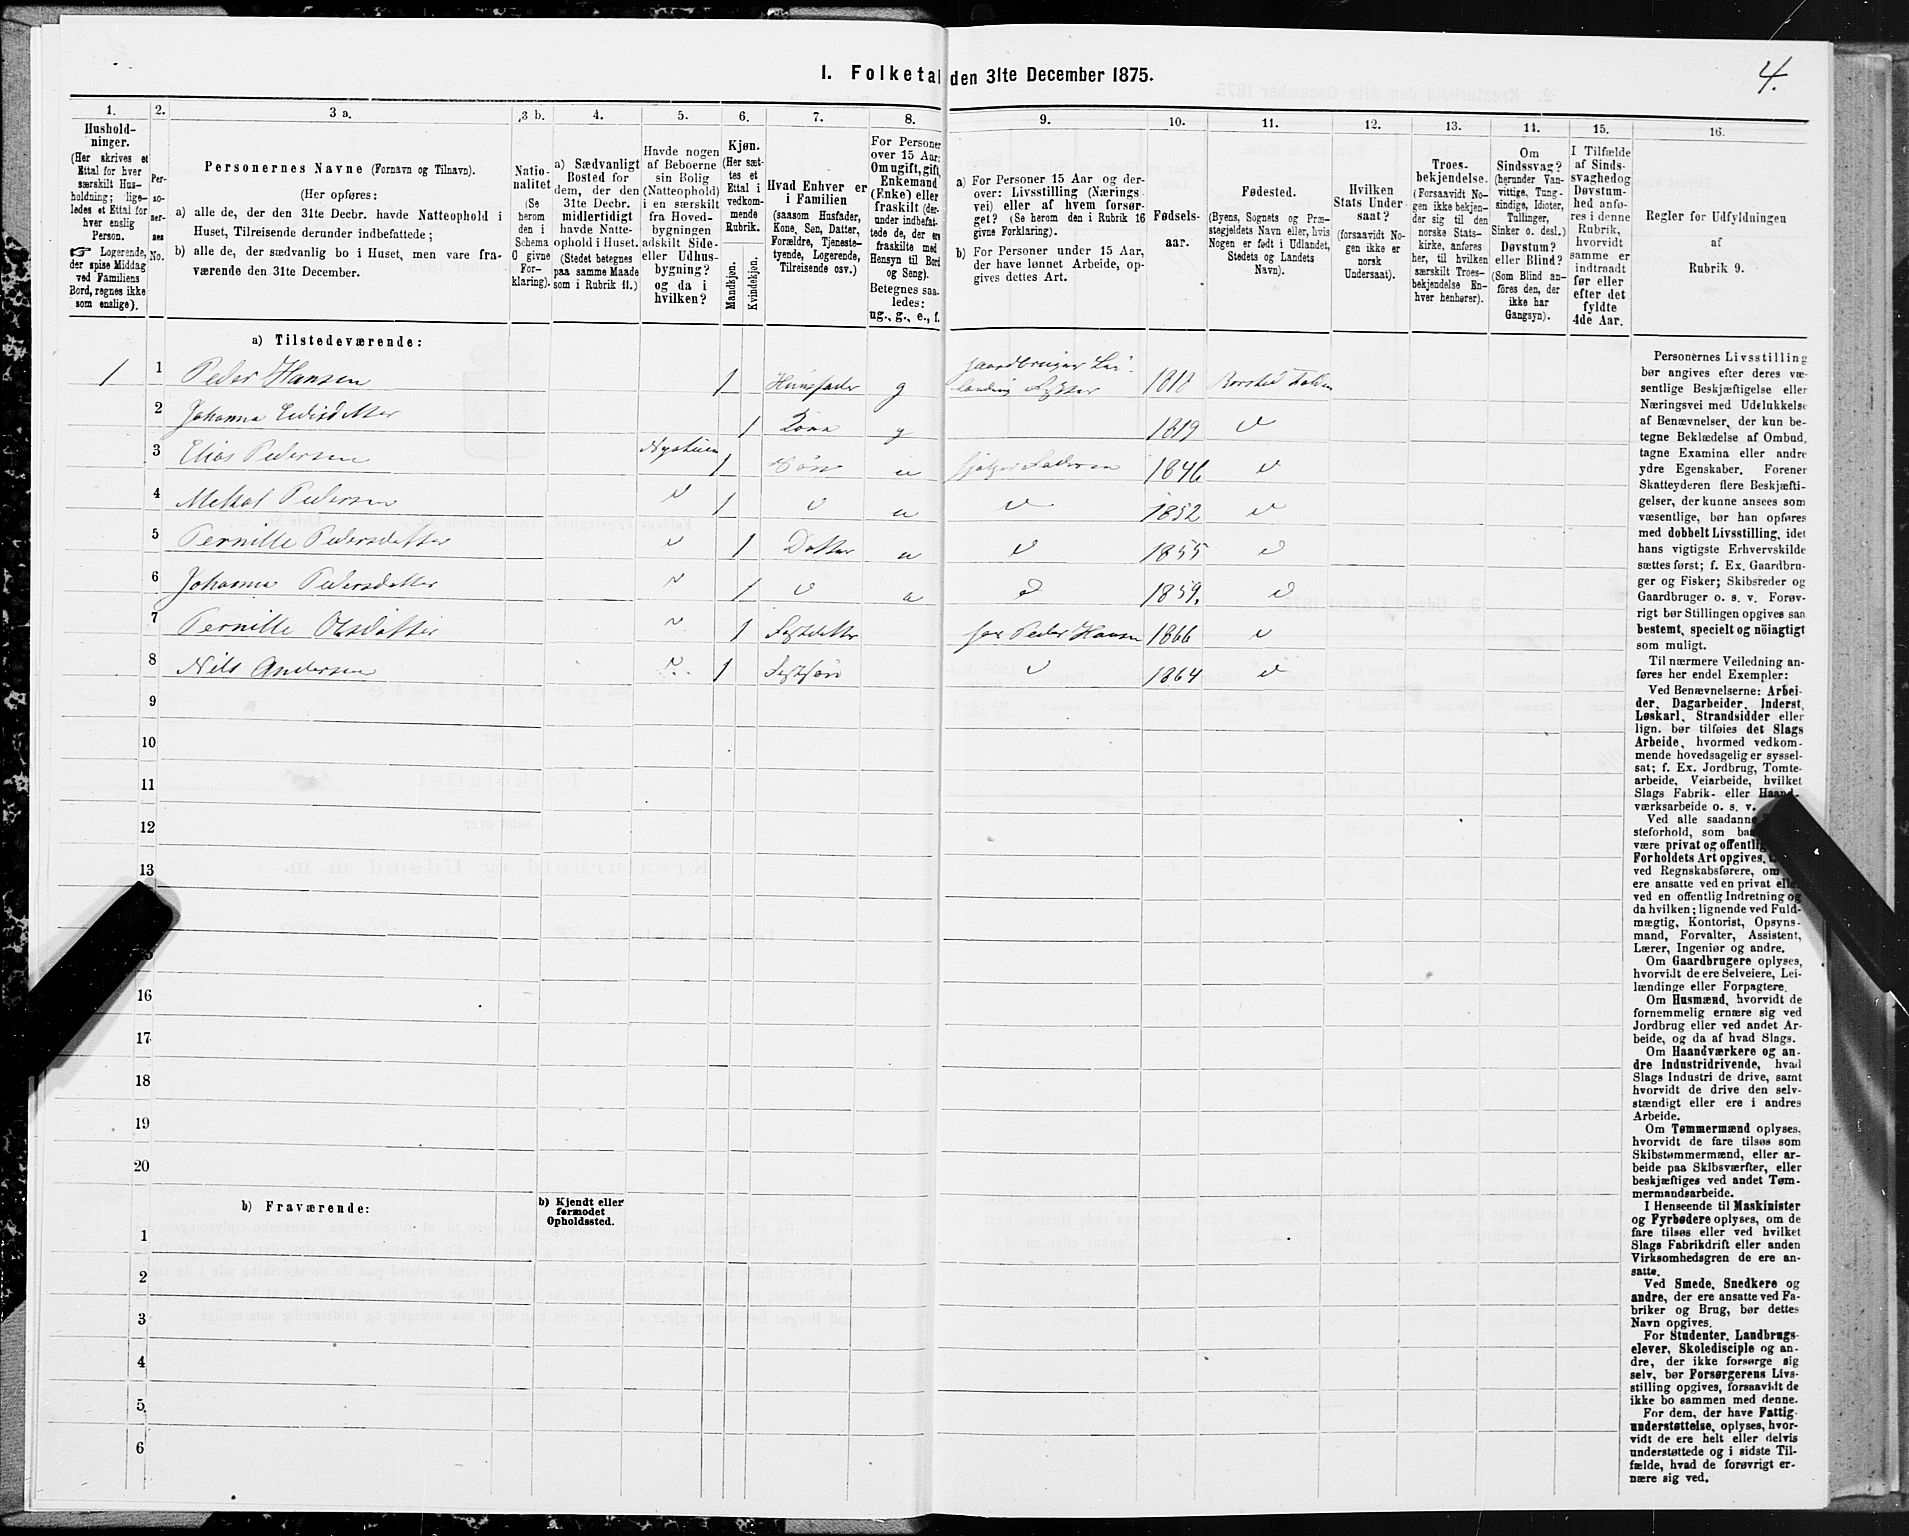 I. Folketal den 31te December 1875.
4.
1.
Hushold-
ninger.
(Her skrives et
Ettal for hver
særskilt Hus-
holdning; lige-
ledes et Ettal for
hver enslig
Person.
☞ Logerende,
der spise Middag
ved Familiens
Bord, regnes ikke
som enslige).
2.
Per-
so-
ner-
nes
No.
3 a.
Personernes Navne (Fornavn og Tilnavn).
(Her opføres:
a) alle de, der den 31te Decbr. havde Natteophold i
Huset, Tilreisende derunder indbefattede;
b) alle de, der sædvanlig bo i Huset, men vare fra-
værende den 31te December.
3 b.
Natio-
nalitet
(Se
herom
den i
Schema
O givne
For-
klaring).
4.
a) Sædvanligt
Bosted for
dem, der den
31te Decbr.
midlertidigt
havde Natte-
ophold i Huset.
(Stedet betegnes
paa samme Maade
som i Rubrik 11.)
5.
Havde nogen
af Beboerne
sin Bolig
(Natteophold)
i en særskilt
fra Hoved-
bygningen
adskilt Side-
eller Udhus-
bygning?
og da i
hvilken?
6.
Kjøn.
(Her sæt-
tes et
Ettal i
vedkom-
mende
Rubrik.
Mandkjøn.
Kvindekjøn.
7.
Hvad Enhver er
i Familien
(saasom Husfader,
Kone, Søn, Datter,
Forældre, Tjeneste-
tyende, Logerende,
Tilreisende osv.)
8.
For Personer
over 15 Aar:
Om ugift, gift,
Enkemand
(Enke) eller
fraskilt (der-
under indbefat-
tede de, der ere
fraskilte med
Hensyn til Bord
og Seng).
Betegnes saa-
ledes:
ug., g., e., f.
9.
a) For Personer 15 Aar og der-
over: Livsstilling (Nærings-
vei) eller af hvem forsør-
get? (Se herom den i Rubrik 16
givne Forklaring).
b) For Personer under 15 Aar,
der have lønnet Arbeide, op-
gives dettes Art.
10.
Fødsels-
aar.
11.
Fødested.
(Byens, Sognets og Præ-
stegjeldets Navn eller, hvis
Nogen er født i Udlandet,
Stedets og Landets
Navn).
12.
Hvilken
Stats Under-
saat?
(forsaavidt No-
gen ikke er
norsk
Undersaat).
13.
Troes-
bekjendelse.
(Forsaavidt No-
gen ikke bekjen-
der sig til den
norske Stats-
kirke, anføres
her, til hvilken
særskilt Troes-
bekjendelse En-
hver henhører).
14.
Om
Sindssvag?
(herunder Van-
vittige, Tung-
sindige, Idioter,
Tullinger,
Sinker o. desl.)
Døvstum?
eller Blind?
(Som Blind an-
føres den, der
ikke har
Gangsyn).
15.
I Tilfælde
af Sinds-
svaghed og
Døvstum-
hed anfø-
res i denne
Rubrik,
hvorvidt
samme er
indtraadt
før eller
efter det
fyldte
4de Aar.
16.
Regler for Udfyldningen
af
Rubrik 9.
a) Tilstedeværende:
1 1 Peder Hansen 1 Huusfader g Gaardbruger Lei-
lænding 1818
2 Johanna 1 Kone g 1819 v
3 Elias Pedersen Nystuen 1 Søn u 1846 v
4 Pedersen v 1 v u v 1852 v
5 Pernille Pedersdatter v 1 Datter u v 1855 v
6 Johanna Pedersdatter v 1 v u v 1859. v
7 Pernille Olsdatter v 1 hos Peder Hansen 1866 v
8 Nils Andersen v 1 v 1864 v
9
10
11
12
13
16
17
18
19
20
b) Fraværende:
b) Kjendt eller
formodet
Opholdssted.
1
2
3
4
5
6
Personernes Livsstilling
bør angives efter deres væ-
sentlige Beskjæftigelse eller
Næringsvei med Udelukkelse
af Benævnelser, der kun be-
tegne Beklædelse af Ombud,
tagne Examina eller andre
ydre Egenskaber. Forener
Skatteyderen flere Beskjæfti-
gelser, der kunne ansees som
væsentlige, bør han opføres
med dobbelt Livsstilling, idet
hans vigtigste Erhvervskilde
sættes først; f. Ex. Gaardbru-
ger og Fisker; Skibsreder og
Gaardbruger o. s. v. Forøv-
rigt bør Stillingen opgives saa
bestemt, specielt og nøiagtigt
som muligt.
Til nærmere Veiledning an-
føres her endel Exempler:
Ved Benævnelserne: Arbei-
der, Dagarbeider, Inderst,
Løskarl, Strandsidder eller
lign. bør tilføies det Slags
Arbeide, hvormed vedkom-
mende hovedsagelig er syssel-
sat; f. Ex. Jordbrug, Tomte-
arbeide, Veiarbeide, hvilket
Slags Fabrik- eller Haand-
værksarbeide o. s. v.
Ved alle saadanne
steforhold, som
være privat og offentlig
Forholdets Art opgives,
ved Regnskabsførere, om
ere ansatte ved en privat eller
ved en offentlig Indretning og
da hvilken; lignende ved Fuld-
mægtig, Kontorist, Opsyns-
mand, Forvalter, Assistent,
Lærer, Ingeniør og andre.
Om Gaardbrugere oplyses,
hvorvidt de ere Selveiere, Lei-
lændinge eller Forpagtere.
Om Husmænd, hvorvidt de
fornemmelig ernære sig ved
Jordbrug eller ved andet Ar-
beide, og da af hvad Slags.
Om Haandværkere og an-
dre Industridrivende, hvad
Slags Industri de drive, samt
hvorvidt de drive den selv-
stændigt eller ere i andres
Arbeide.
Om Tømmermænd oplyses,
hvorvidt de fare tilsøs som
Skibstømmermænd, eller ar-
beide paa Skibsværfter, eller
beskjæftiges ved andet Tøm-
mermandsarbeide.
I Henseende til Maskinister
og Fyrbødere oplyses, om de
fare tilsøs eller ved hvilket
Slags Fabrikdrift eller anden
Virksomhedsgren de ere an-
satte.
Ved Smede, Snedkere og
andre, der ere ansatte ved Fa-
briker og Brug, bør dettes
Navn opgives.
For Studenter, Landbrugs-
elever, Skoledisciple og an-
dre, der ikke forsørge sig
selv, bør Forsørgerens Livs-
stilling opgives, forsaavidt de
ikke bo sammen med denne.
For dem, der have Fattig-
understøttelse, oplyses, hvor-
vidt de ere helt eller delvis
understøttede og i sidste Til-
fælde, hvad de forøvrigt er-
nære sig ved.